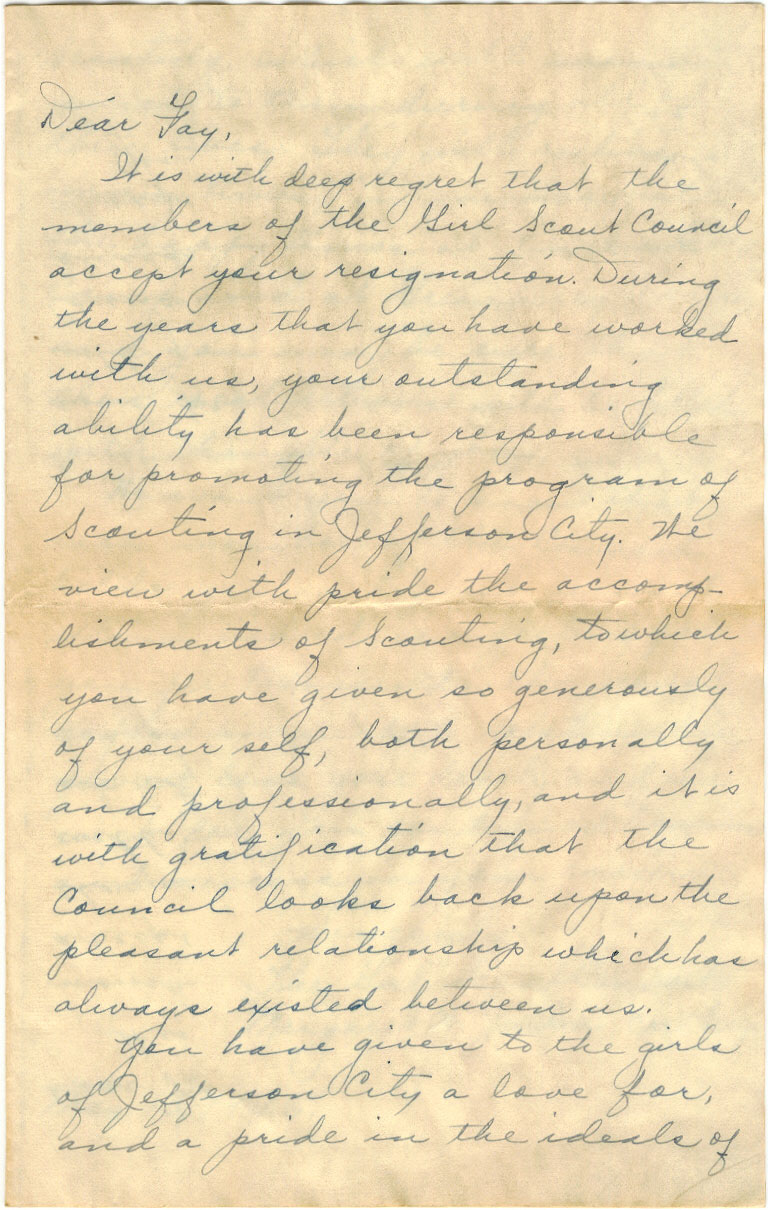 Dear Fay,
It is with deep regret that the
members of the Girl Scout Council
accept your resignation. During
the years that you have worked
with us, your outstanding
ability has been responsible
for promoting the program of
Scouting in Jefferson City. We
view with pride the accomp-
lishments of Scouting, to which
you have given so generously
of your self, both personally
and professionally, and it is
with gratification that the
Council looks back upon the
pleasant relationship which has
always existed between us.
You have given to the girls
of Jefferson City a love for,
and a pride in the ideals of